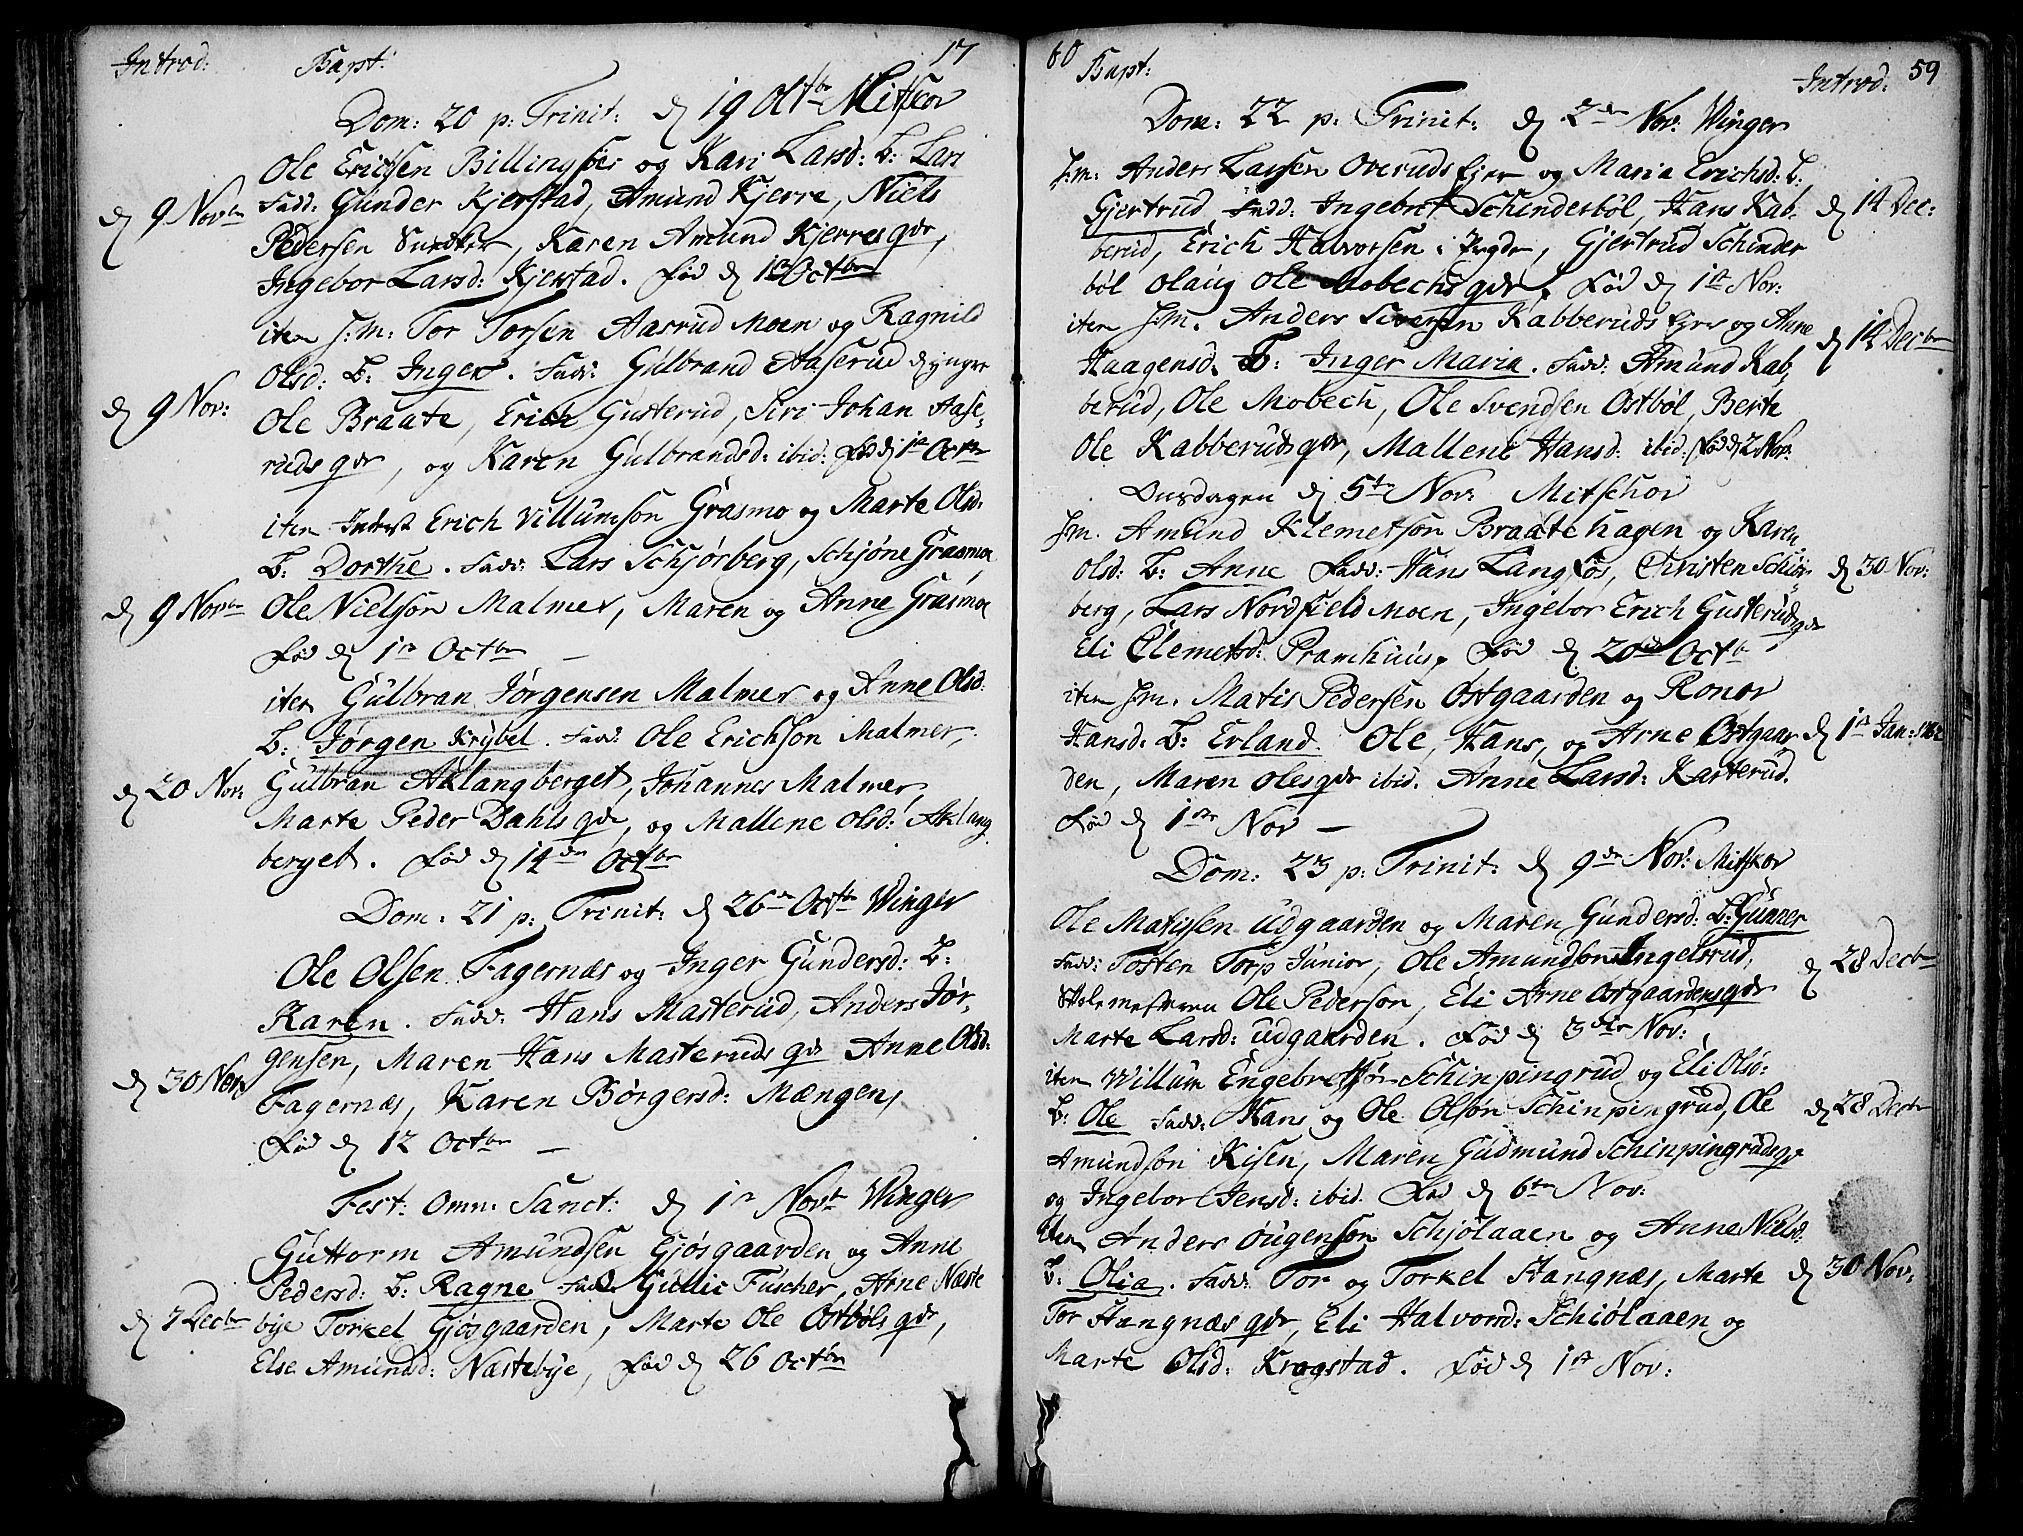 Introd: Bapt: 17
Dom: 20 p: Trinit: d 19 Octbr Mitschov
Ole Ericsen Billingsøe og Kari Larsd: B: Lars
d 9 Novbr
Fadd: Gunder Kjerstad, Amund Kjerre, Niels
Pedersen Sundbye, Karen Amund Kjerres qde,
Ingebor Larsd: Kjerstad. Fød d 1 Octbr
iten S:m: Tor Torsen Aasrud Moen og Ragnild
Olsd: B: Inger. Fadd: Gulbrand Aaserud d yngre
d 9 Nov:
Ole Braate, Erich Gusterud, Siri Johan Aase-
ruds qde, og Karen Gulbrandsd: ibid: Fød d 1te Octbr
iten Inderst Erich Villumson Grasmo og Marte Olsd:
B: Dorthe. Fadd: Lars Schjørberg, Schjøne Grasmoe
d 9 Novbr
Ole Nielson Malmer, Maren og Anne Grasmoe
Fød d 1te Octbr —
iten Gulbran Jørgensen Malmer og Anne Olsd:
B: Jørgen Krybel. Fadd: Ole Erichson Malmer,
d 20 Nov:
Gulbran Aklangberget, Johannes Malmer,
Marte Peder Dahls qde, og Mallene Olsd: Aklang
berget. Fød d 14de Octbr
Dom: 21 p: Trinit: d 26de Octbr Winger
Ole Olsen Fagernæs og Inger Gundersd: B:
Karen. Fadd: Hans Masterud, Anders Jør-
gensen, Maren Hans Masteruds qde Anne Olsd:
d 30 Nov:
Fagernæs, Karen Børgersd: Mængen,
Fød d 12 Octbr —
Fest: Omn: Sanct: d 1te Nov: Winger
Guttorm Amundsen Gjøsgaarden og Anne
Pedersd: B: Ragne Fadd: Gullic Fuscher, Arne Næste
d 7 Decbr
bye Torkel Gjøsgaarden, Marte Ole Ostbøls qde,
Else Amundsd: Næstebye, Fød d 26 Octbr
60 Bapt: Introd: 59
Dom: 22 p: Trinit: d 2den Nov: Winger
S:m: Anders Larsen Overuds Ejer og Maria Erichsd: B:
Gjertrud, Fadd: Ingebret Schinderbøl, Hans Kab-
d 14 Dec:
berud, Erich Halvorsen i Bygde, Gjertrud Schinder
bøl Olaug Ole Mobechs qde. Fød d 1te Nov:
iten S:m. Anders Siversen Kabberuds Ejer og Anne
d 14 Decbr
Haagensd: B: Inger Maria. Fadd: Amund Kab-
berud, Ole Mobech, Ole Svendsen Ostbøl, Berte
Ole Kabberuds qde, Mallene Hansd: ibid: Fød d 2 Nov:
Onsdagen d 5te Nov: Mitschov
S:m. Amund Klemetson Braatehagen og Karen
Olsd: B: Anne Fadd: Hans Langfos, Christen Schiør
d 30 Nov:
berg, Lars Nordfieldmoen, Ingebor Erich Gusteruds qde
Eli Clemetsd: Pramhuus, Fød d 20de Octbr
iten S:m. Matis Pedersen Ostgaarden og Ronor
Hansd: B: Erland. Ole, Hans, og Arne Ostgaar
d 1te Jan: 1761
den, Maren Oles qde ibid. Anne Larsd: Karterud.
Fød d 1ste Nov —
Dom: 23 p: Trinit: d 9de Nov: Mitskov
Ole Matissen Udgaarden og Maren Gundersd: B: Gunner
Fadd: Tosten Torp Junior, Ole Amundson Ingelsrud,
d 28 Decbr
Skolemesteren Ole Pederson, Eli Arne Ostgaardens qde
Marte Larsd: Udgaarden. Fød d 3die Nov:
iten Willum Engebretson Schinpingrud og Eli Olsd:
B: Ole Fadd: Hans og Ole Olsøn Schinpingrud, Ole
d 28 Decbr
Amundson Kisen, Maren Gudmund Schinpingruds qde
og Ingebor Jensd: ibid. Fød d 6te Nov:
iten Anders Ougenson Schjølaaen og Anne Nielsd:
B: Olia. Fadd: Tor og Torkel Hangnæs, Marte
d 30 Nov:
Tor Hangnæs qde, Eli Halvord: Schiølaaen og
Marte Olsd: Kragstad. Fød d 1te Nov: